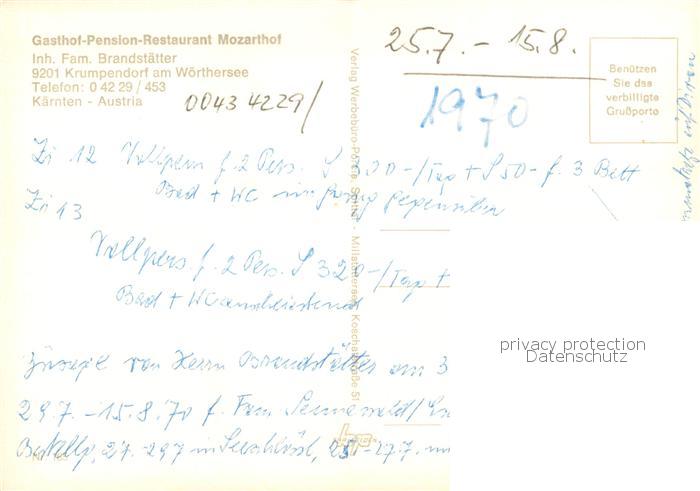 Gasthof-Pension-Restaurant Mozarthof
Inh. Fam. Brandstätter
9201 Krumpendorf am Wörthersee
Telefon: 0 42 29 / 453
Kärnten - Austria
0043 4229/
25.7. - 15.8.
1970
Benützen
Sie das
verbilligte
Grußporto
Zi 12 Vollpens f. 2 Pers. S 320-/Tag + S 50- f. 3 Bett
Bad + WC gegenüber
Zi 13
Vollpens. f. 2 Pers. S 320-/Tag +
Bad + WC anschließend
Verlag Werbebüro-Post
Millstättersee
Zusage von Herrn Brandstätter am 3
29.7. - 15.8.70 f. Fam
27. - 29.7 in Seeschlössl,
privacy protection
Datenschutz